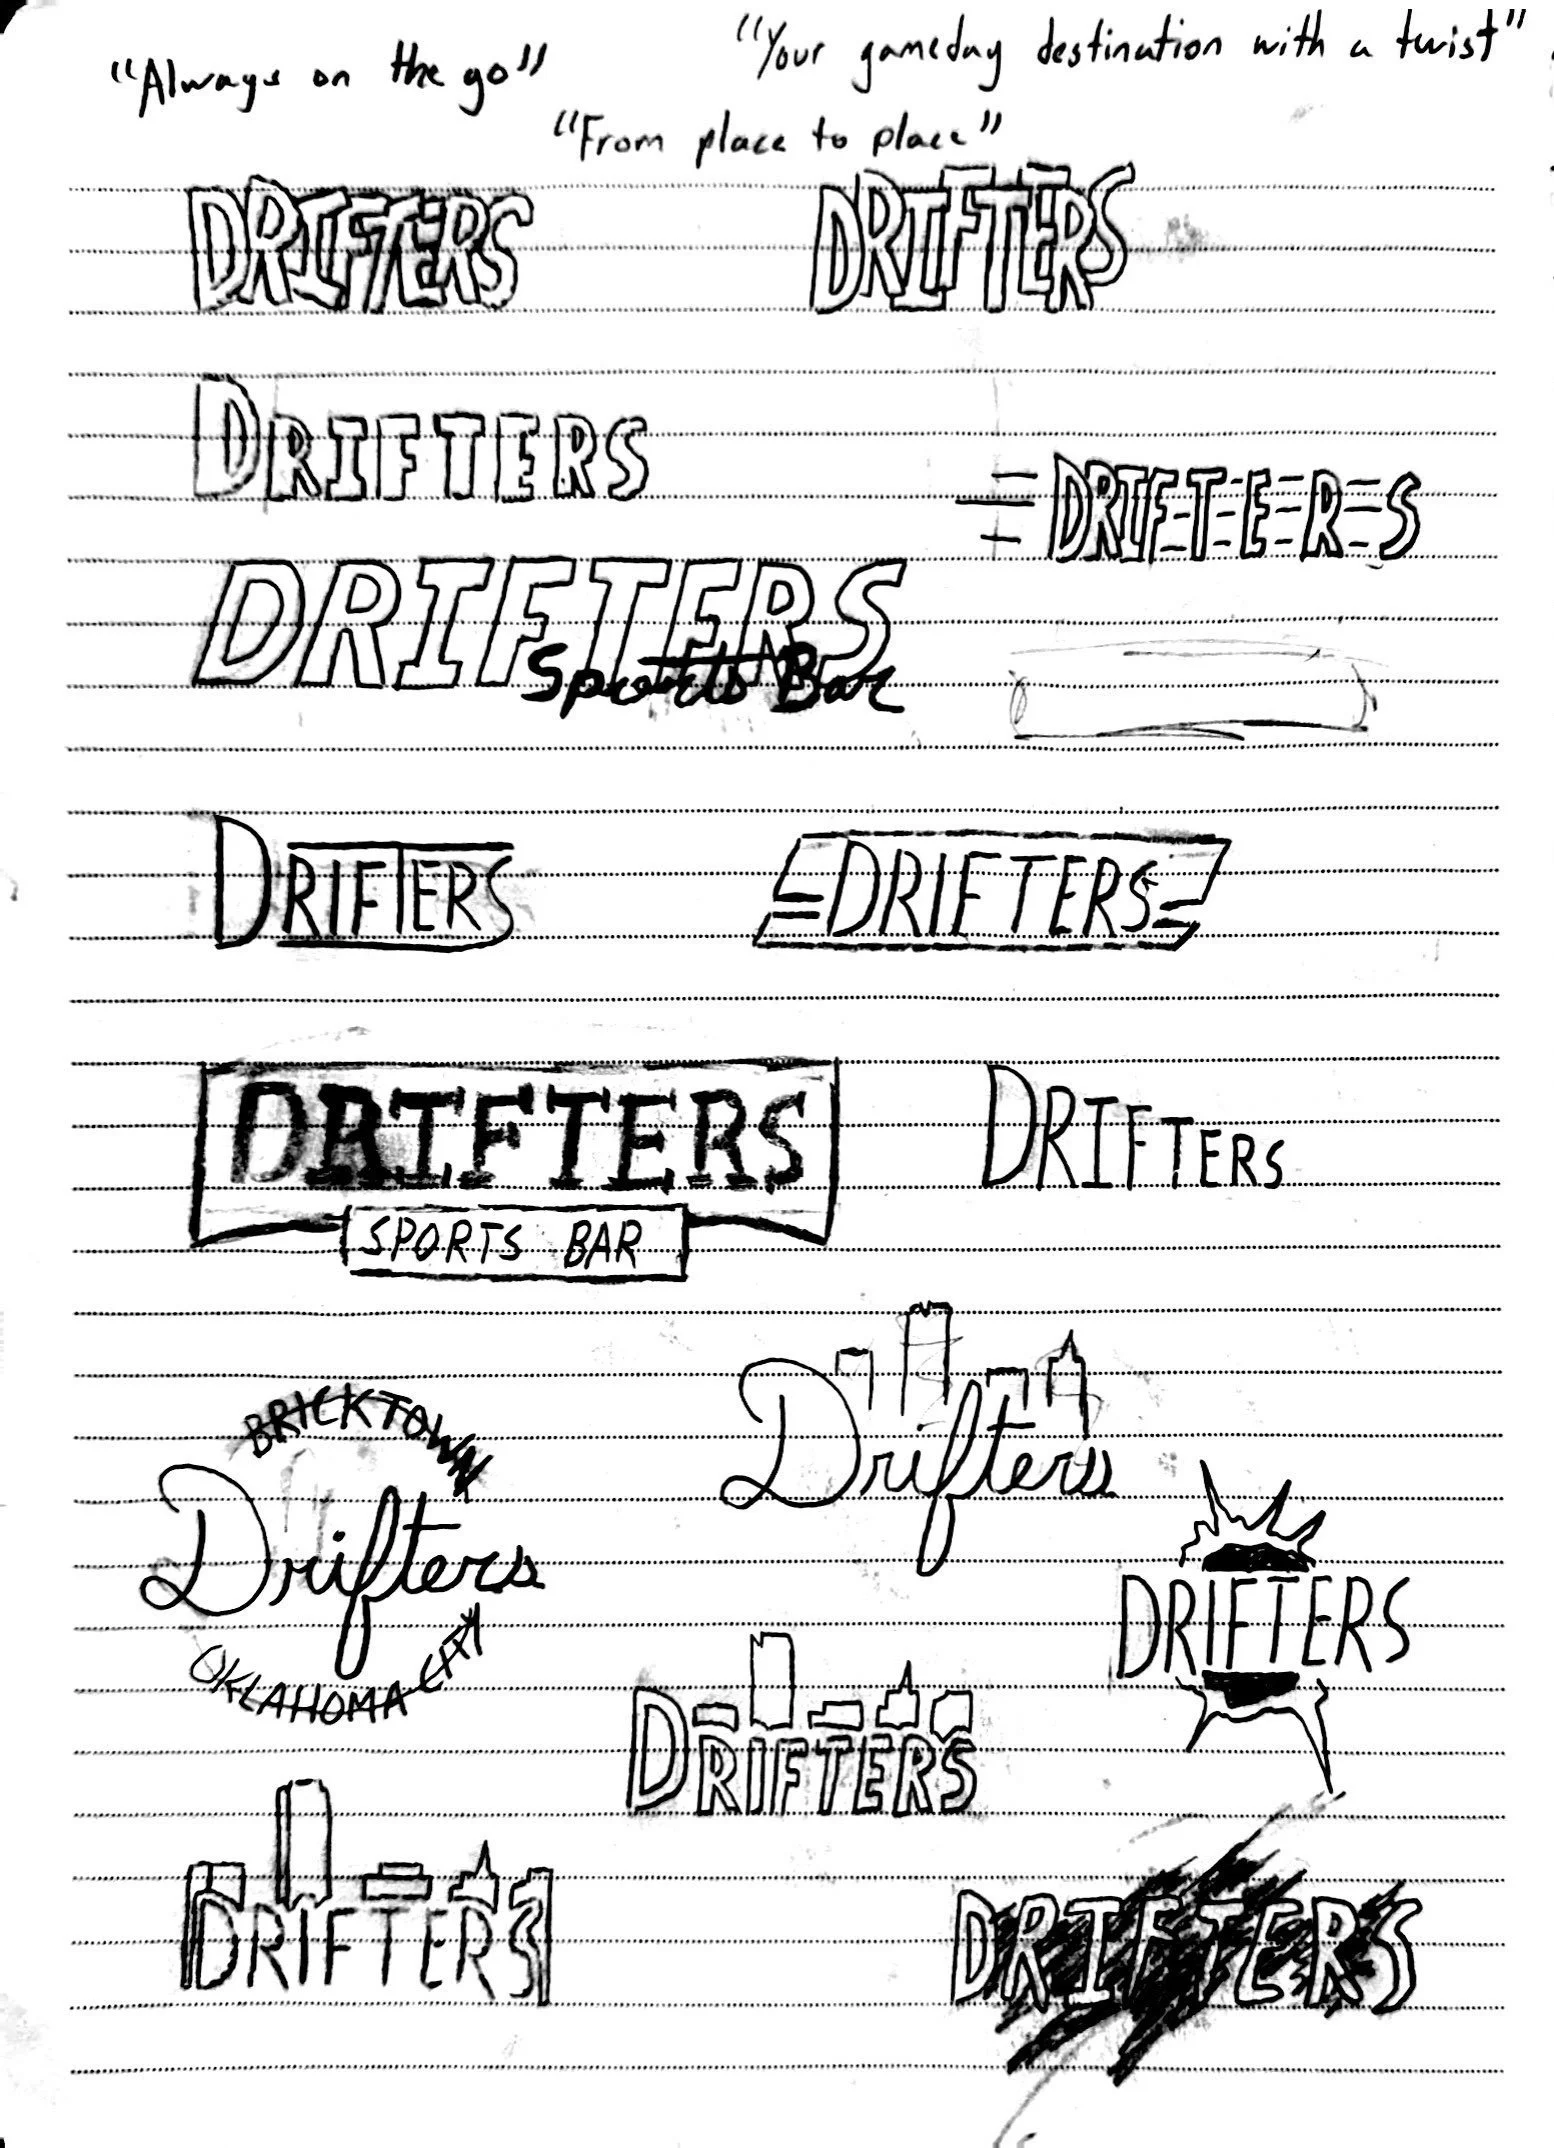 "Always on the go"
"Your gameday destination with a twist"
"From place to place"
DRIFTERS
DRIFTERS
DRIFTERS
DRIF-T-E-R-S
DRIFTERS
Sports Bar
DRIFTERS
DRIFTERS
DRIFTERS
SPORTS BAR
DRIFTERS
Drifters
BRICKTOWN
Drifters
OKLAHOMA CITY
DRIFTERS
DRIFTERS
DRIFTERS
DRIFTERS